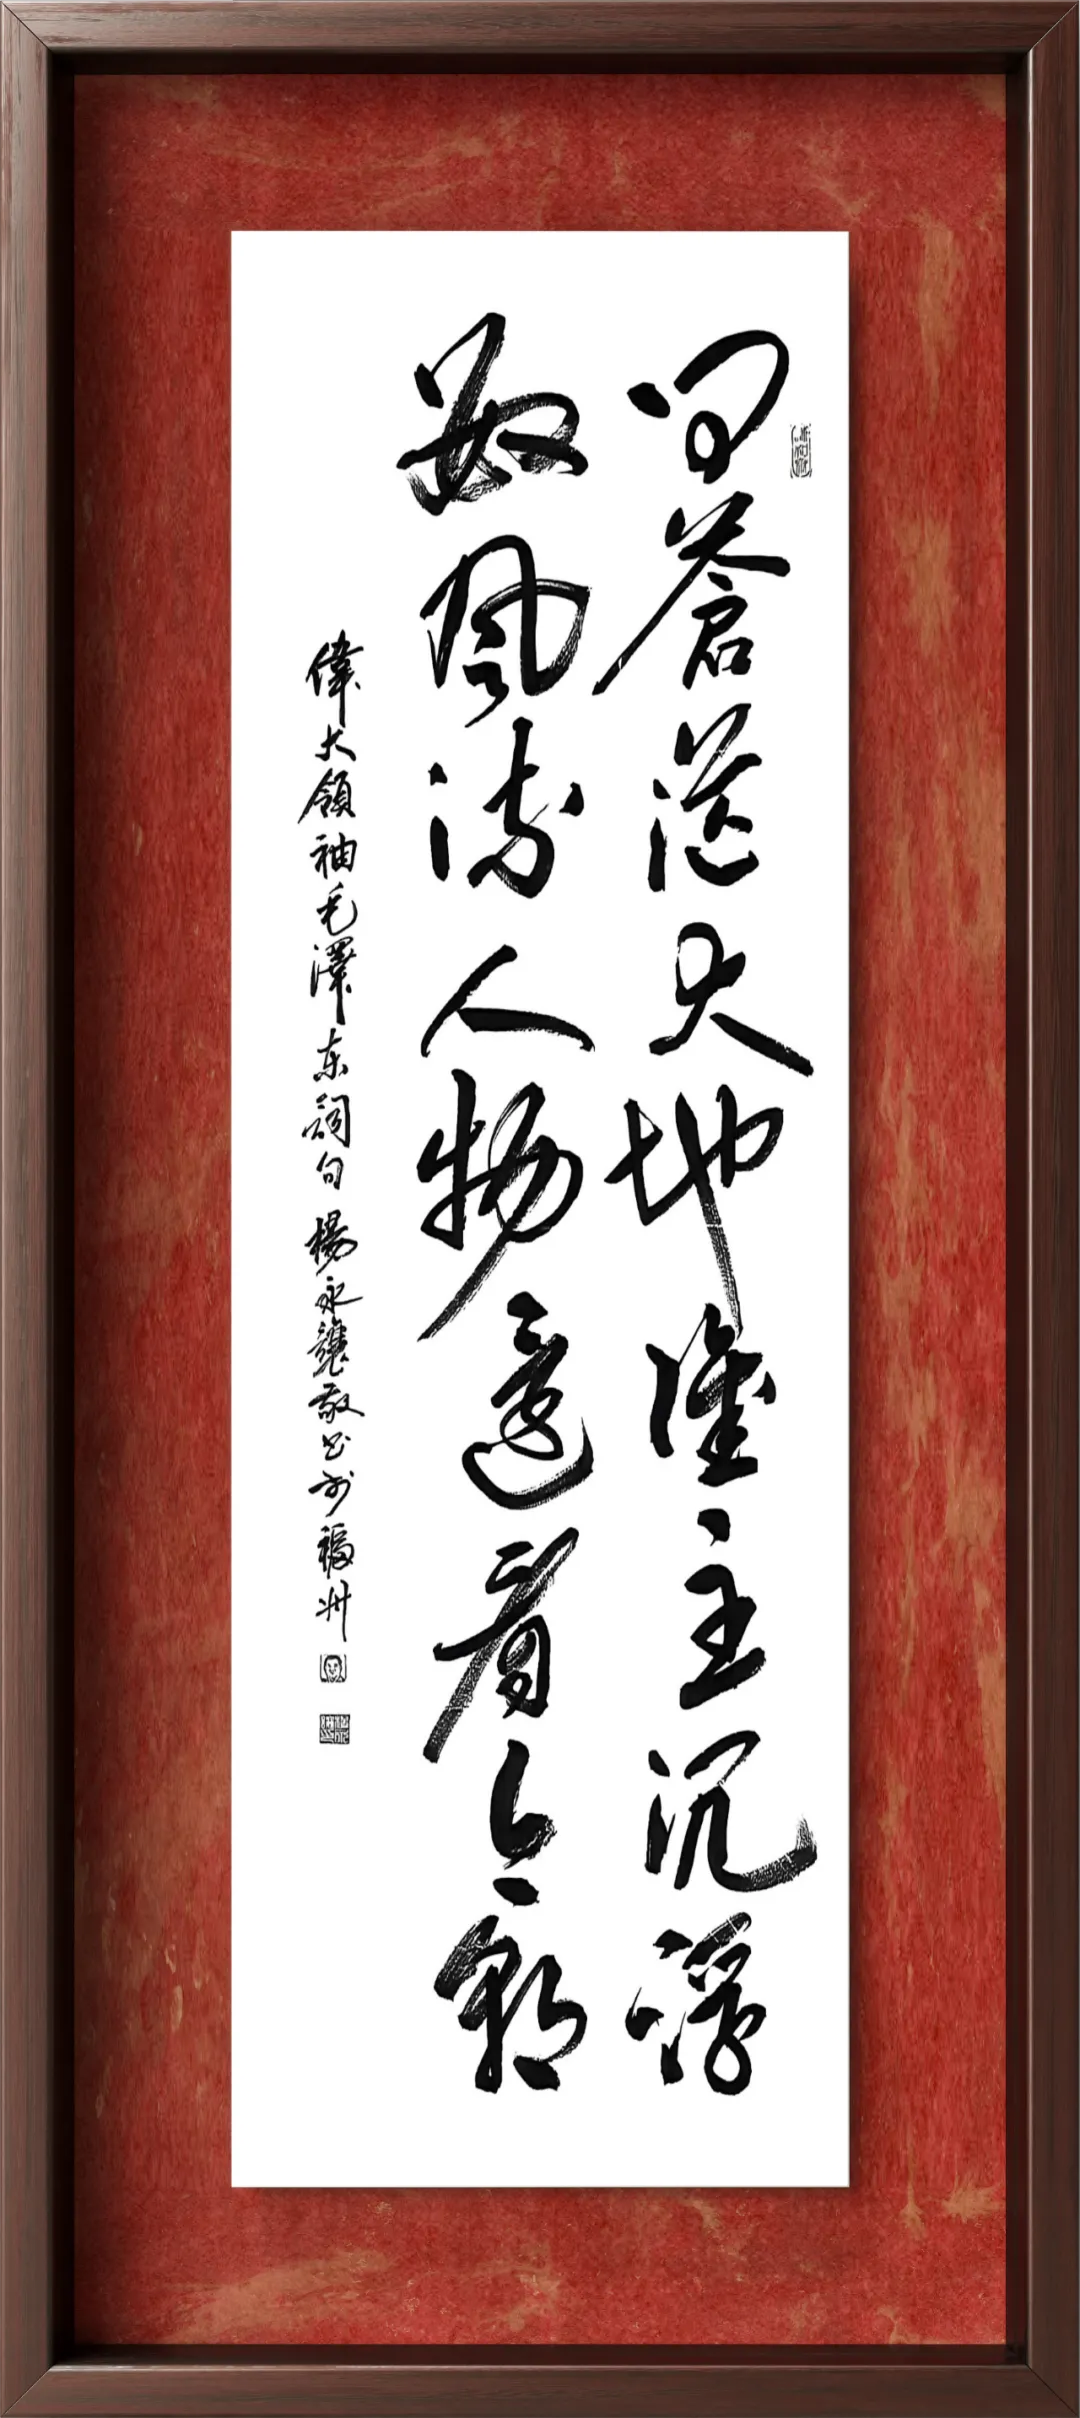 问蒼茫大地誰主沉浮
数風流人物還看今朝
偉大領袖毛澤东詞句 楊永讓敬书於福州